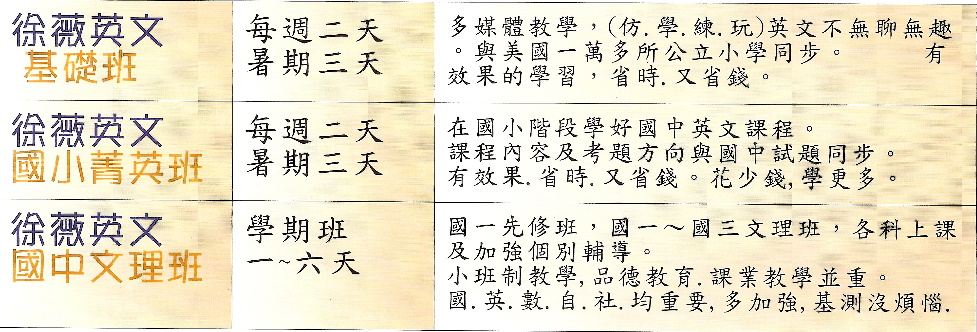 徐薇英文
基礎班
每週二天
暑期三天
多媒體教學，(仿.學.練.玩)英文不無聊無趣
。與美國一萬多所公立小學同步。 有
效果的學習，省時.又省錢。
徐薇英文
國小菁英班
每週二天
暑期三天
在國小階段學好國中英文課程。
課程內容及考題方向與國中試題同步。
有效果.省時.又省錢。花少錢,學更多。
徐薇英文
國中文理班
學期班
一~六天
國一先修班，國一～國三文理班，各科上課
及加強個別輔導。
小班制教學,品德教育.課業教學並重。
國.英.數.自.社.均重要,多加強,基測沒煩惱.